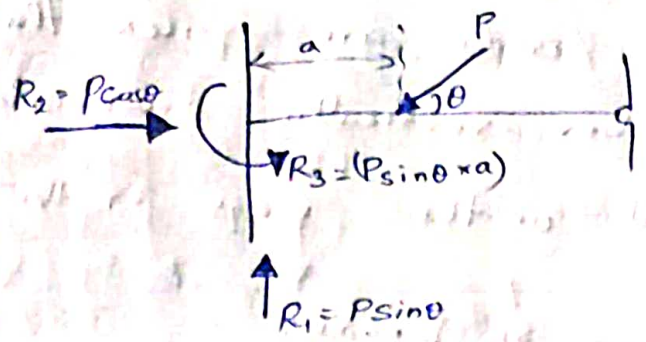 a
P
R₂ = Pcosθ
θ
R₃ = (Psinθ × a)
R₁ = Psinθ